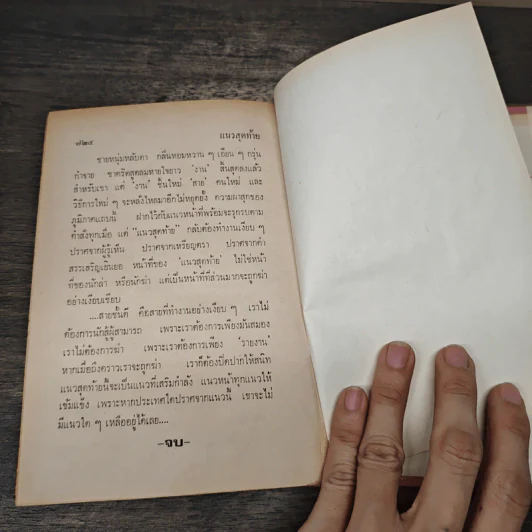 ๗๒๔ แนวสุดท้าย
ชายหนุ่มหลับตา กลิ่นหอมหวาน ๆ เอียน ๆ กรุ่น
กำจาย ชาคริตสูดลมหายใจยาว 'งาน' สิ้นสุดลงแล้ว
สำหรับเขา แต่ 'งาน' ชิ้นใหม่ 'สาย' คนใหม่ และ
วิธีการใหม่ ๆ จะหลั่งไหลมาอีกไม่หยุดยั้ง ความผาสุกของ
ภูมิภาคแถบนี้ ฝากไว้กับแนวหน้าที่พร้อมจะรุกรบตาม
คำสั่งทุกเมื่อ แต่ "แนวสุดท้าย" กลับต้องทำงานเงียบ ๆ
ปราศจากผู้รู้เห็น ปราศจากเหรียญตรา ปราศจากคำ
สรรเสริญเยินยอ หน้าที่ของ "แนวสุดท้าย" ไม่ใช่หน้า
ที่ของนักล่า หรือนักฆ่า แต่เป็นหน้าที่ที่ส่วนมากจะถูกฆ่า
อย่างเงียบเชียบ
....สายชั้นดี คือสายที่ทำงานอย่างเงียบ ๆ เราไม่
ต้องการนักสู้ผู้สามารถ เพราะเราต้องการเพียงมันสมอง
เราไม่ต้องการฆ่า เพราะเราต้องการเพียง 'รายงาน'
หากเมื่อถึงคราวเราจะถูกฆ่า เราก็ต้องปิดปากให้สนิท
แนวสุดท้ายนี้จะเป็นแนวที่เสริมกำลัง แนวหน้าทุกแนวให้
เข้มแข็ง เพราะหากประเทศใดปราศจากแนวนี้ เขาจะไม่
มีแนวใด ๆ เหลืออยู่ได้เลย....
-จบ-